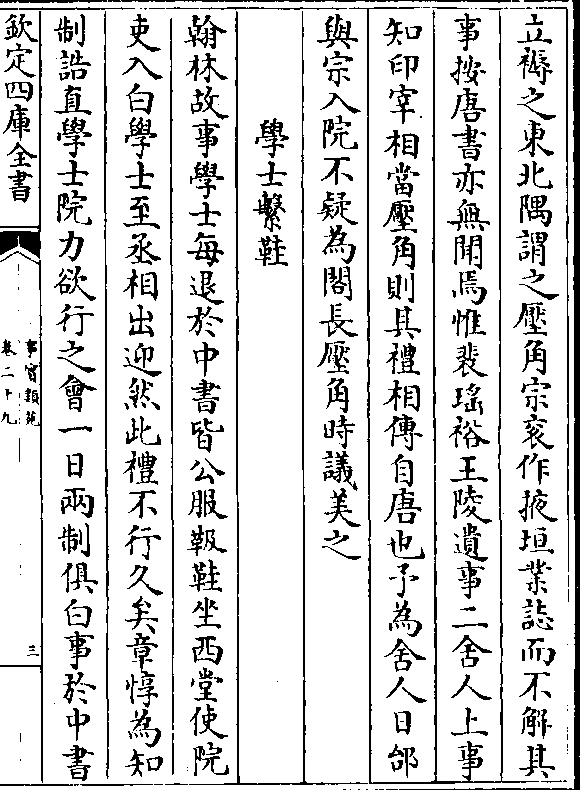 立褥之東北隅謂之壓角宗衮作掖垣業誌而不解其
事按唐書亦無聞焉惟裴瑤裕王陵遺事二舍人上事
知印宰相當壓角則其禮相傳自唐也予為舍人日邰
與宗入院不疑為閣長壓角時議美之
學士繫鞋
翰林故事學士每退於中書皆公服靸鞋坐西堂使院
吏入白學士至丞相出迎然此禮不行久矣章惇為知
制誥直學士院力欲行之會一日兩制俱白事於中書
欽定四庫全書
事實類苑
卷二十九
三